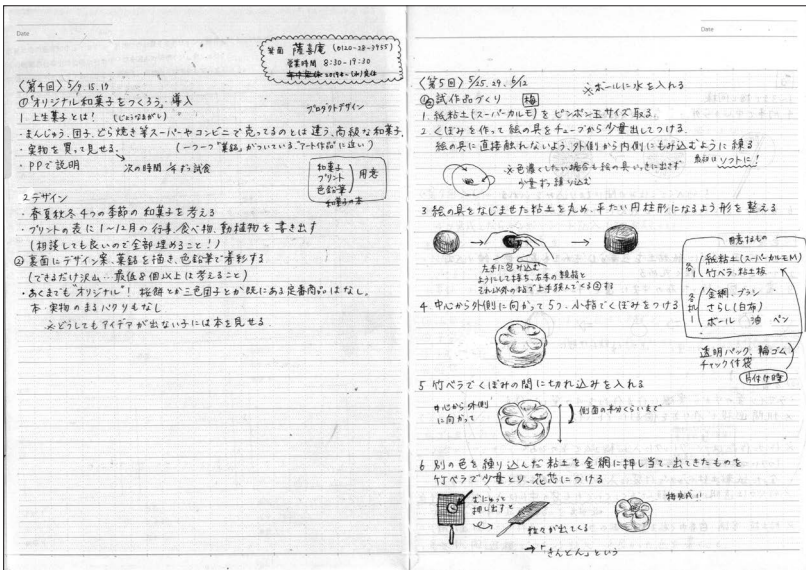 Date
箕面 薩喜庵 (0120-28-3955)
営業時間 8:30-19:30
〈第4回〉5/9.15.17
①"オリジナル和菓子をつくろう" 導入
プロダクトデザイン
1. 上生菓子とは! (じょうなまがし)
・まんじゅう、団子、どら焼き等スーパーやコンビニで売ってるのとは違う、高級な和菓子。
・実物を買って見せる。
(一つ一つ"菓銘"がついている。アート作品に近い)
・PPで説明
次の時間 ずつ試食
和菓子
プリント
色鉛筆
用意
和菓子の本
2.デザイン
・春夏秋冬4つの季節の和菓子を考える
・プリントの表に1〜12月の行事、食べ物、動植物を書き出す
(相談しても良いので全部埋めること!)
② 裏面にデザイン案、菓銘を描き、色鉛筆で着彩する
(できるだけ沢山…最低8個以上は考えること)
・あくまでも"オリジナル"! 桜餅とか三色団子とか既にある定番商品はなし。
本・実物のまるパクリもなし
※どうしてもアイデアが出ない子には本を見せる。
Date
〈第5回〉5/25.29.6/12
※ボールに水を入れる
試作品づくり 梅
1. 紙粘土(スーパーカルモ)をピンポン玉サイズ取る。
2. くぼみを作って絵の具をチューブから少量出してつける。
絵の具に直接触れないよう、外側から内側にもみ込むように練る
ソフトに!
※色濃くしたい場合も絵の具いっきに出さず
少量ずつ練り込む
3 絵の具をなじませた粘土を丸め、平たい円柱形になるよう形を整える
左手に包み込む
ようにして持ち、右手の親指と
それ以外の指で上手く挟んでくる回する
用意するもの
各1
紙粘土(スーパーカルモM)
竹ベラ、粘土板
各机1
金網・ブラシ
さらし(白布)
ボール 油 ペン
透明パック、輪ゴム
チャック付袋
片付け時
4. 中心から外側に向かって5つ、小指でくぼみをつける
5 竹ベラでくぼみの間に切れ込みを入れる
中心から外側
に向かって
側面の半分くらいまで
6 別の色を練り込んだ粘土を金網に押し当て、出てきたものを
竹ベラで少量とり、花芯につける
むにゅっと
押し出すと
粒々が出てくる
→「きんとん」という
梅完成!!